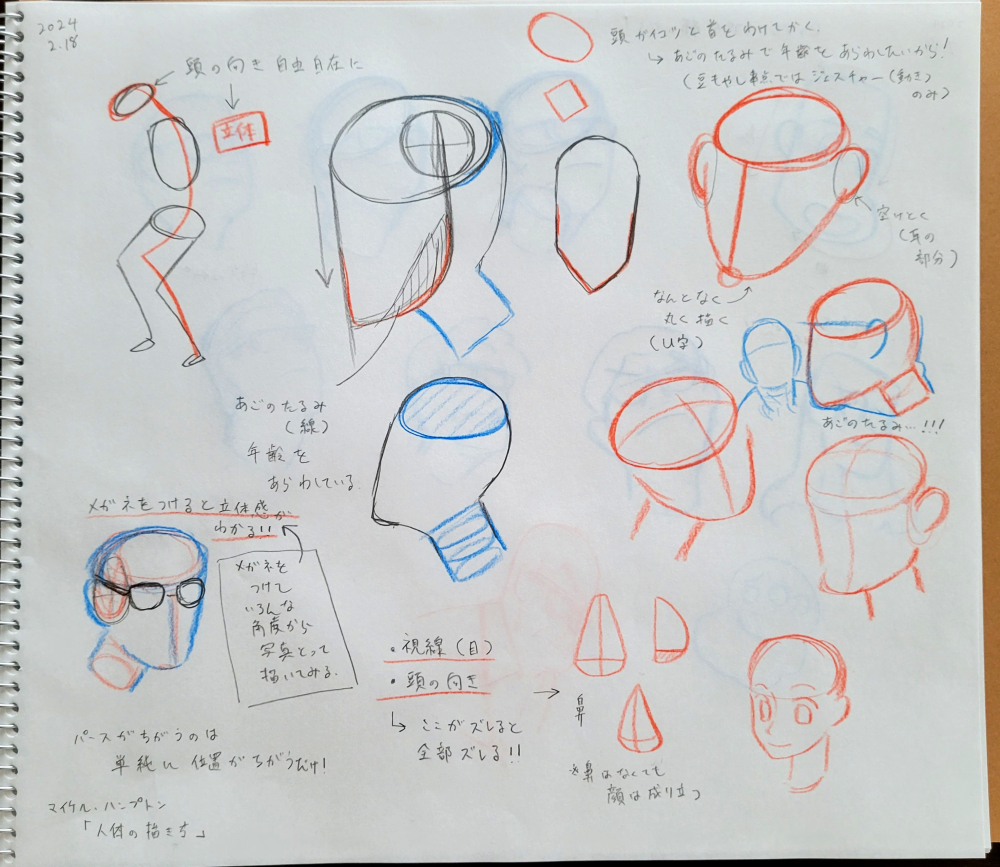 2024
2.18
頭の向き 自由自在に
立体
頭がイコツと首をわけてかく。
↳ あごのたるみで年齢をあらわしたいから!
(豆もやし時点ではジェスチャー(動き)
のみ)
空けとく
(耳の
部分)
なんとなく
丸く描く
(U字)
あごのたるみ…!!!
あごのたるみ
(線)
年齢を
あらわしている。
メガネをつけると立体感が
わかる!!
メガネを
つけて
いろんな
角度から
写真とって
描いてみる。
・視線(目)
・頭の向き
↳ ここがズレると
全部ズレる!!
→
鼻
※鼻はなくても
顔は成り立つ
パースがちがうのは
単純に位置がちがうだけ!
マイケル・ハンプトン
「人体の描き方」